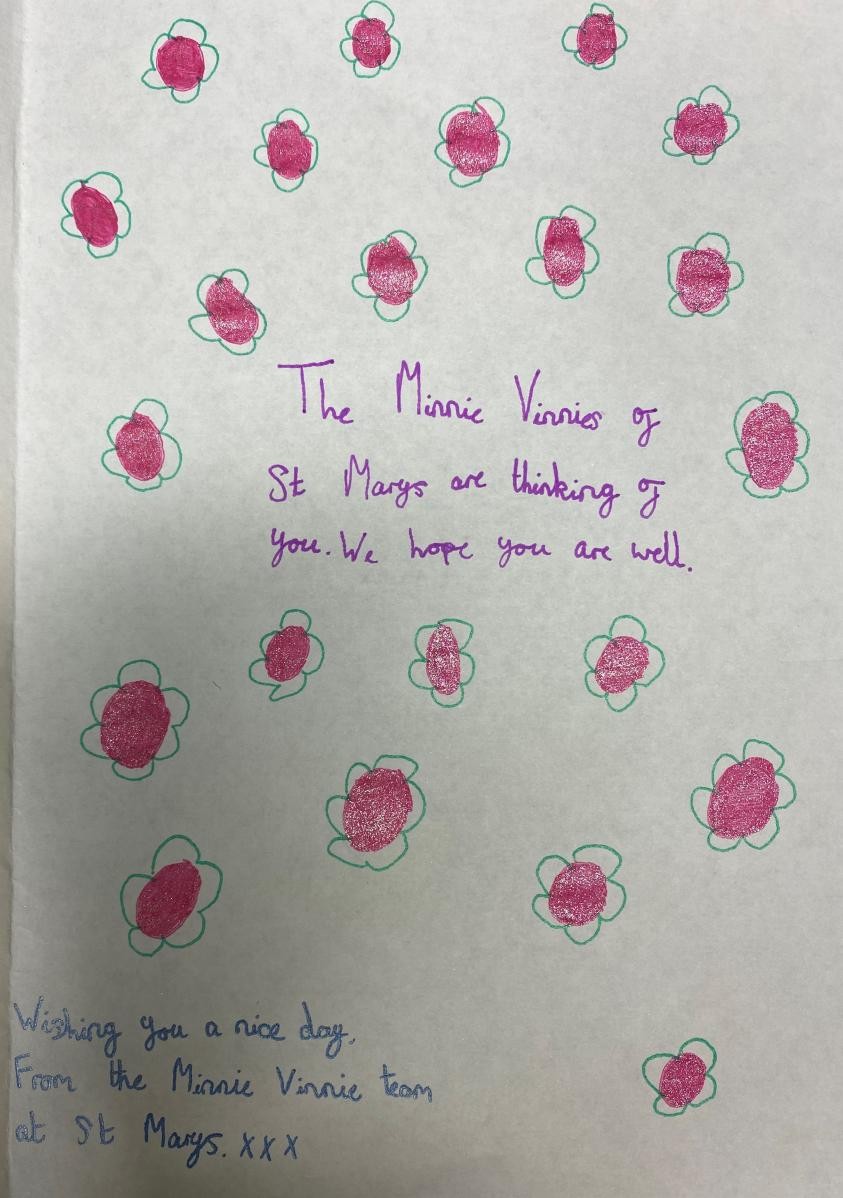 The Minnie Vinnies of
St Marys are thinking of
you. We hope you are well.
Wishing you a nice day.
From the Minnie Vinnie team
at St Marys. xxx